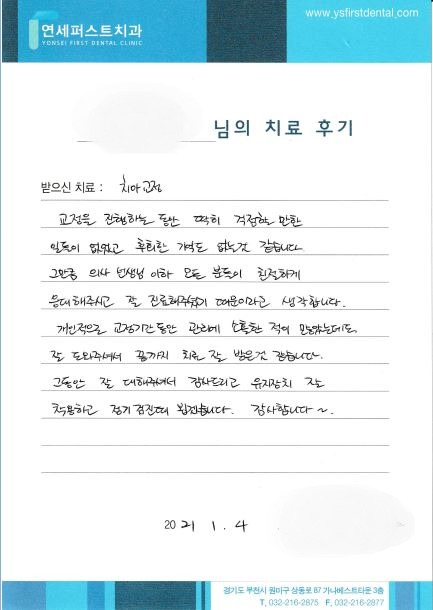 연세퍼스트치과
YONSEI FIRST DENTAL CLINIC
www.ysfirstdental.com
님의 치료 후기
받으신 치료 : 치아교정
교정을 진행하는 동안 딱히 걱정할 만한
일들이 없었고 후회한 기억도 없는것 같습니다.
그만큼 의사 선생님 이하 모든 분들이 친절하게
응대해주시고 잘 진료해주셨기 때문이라고 생각합니다.
개인적으로 교정기간동안 관리에 소홀한 적이 많았는데도
잘 도와주셔서 끝까지 치료 잘 받은것 같습니다.
그동안 잘 대해주셔서 감사드리고 유지장치 잘
착용하고 정기검진때 뵙겠습니다. 감사합니다~.
2021. 1. 4
경기도 부천시 원미구 상동로 87 가나베스트타운 3층
T. 032-216-2875 F. 032-216-2877